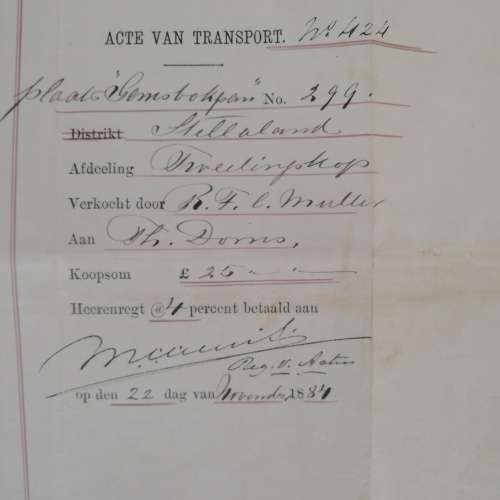 ACTE VAN TRANSPORT. No 424
plaats "Gemsbokpan" No. 299.
Distrikt Stellaland
Afdeeling Tweelingskop
Verkocht door R. F. C. Muller
Aan Th. Doms,
Koopsom £ 25 " "
Heerenregt @ 4 percent betaald aan
Reg. v. Acten
op den 22 dag van November 1884